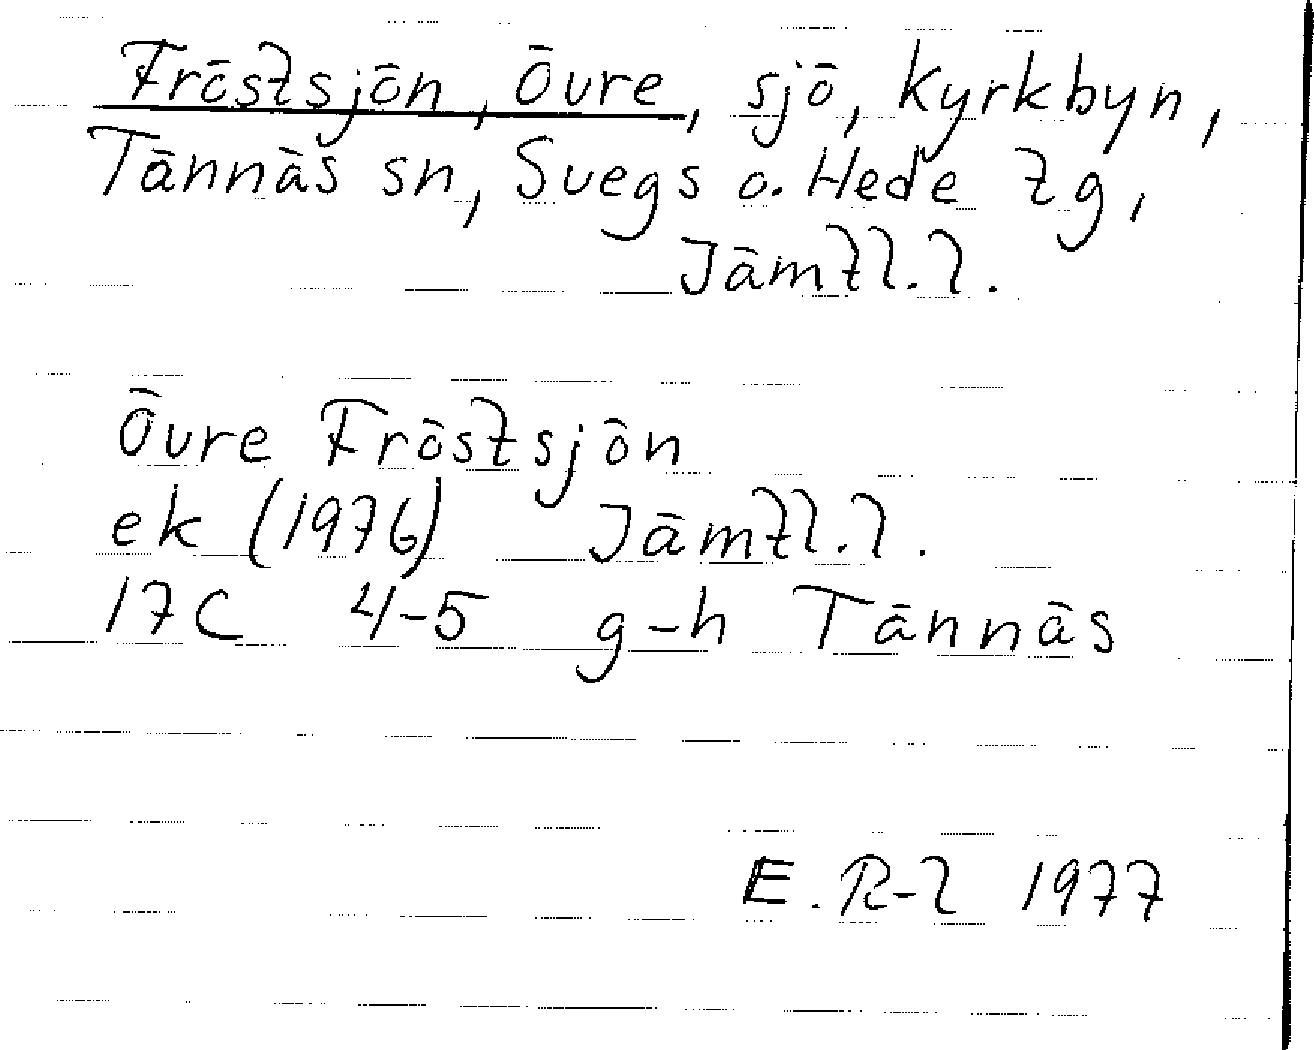 Fröstsjön, Övre, sjö, Kyrkbyn,
Tännäs sn, Svegs o. Hede tg,
Jämtl.l.
Övre Fröstsjön
ek (1976) Jämtl.l.
17C 4-5 g-h Tännäs
E. R-l 1977